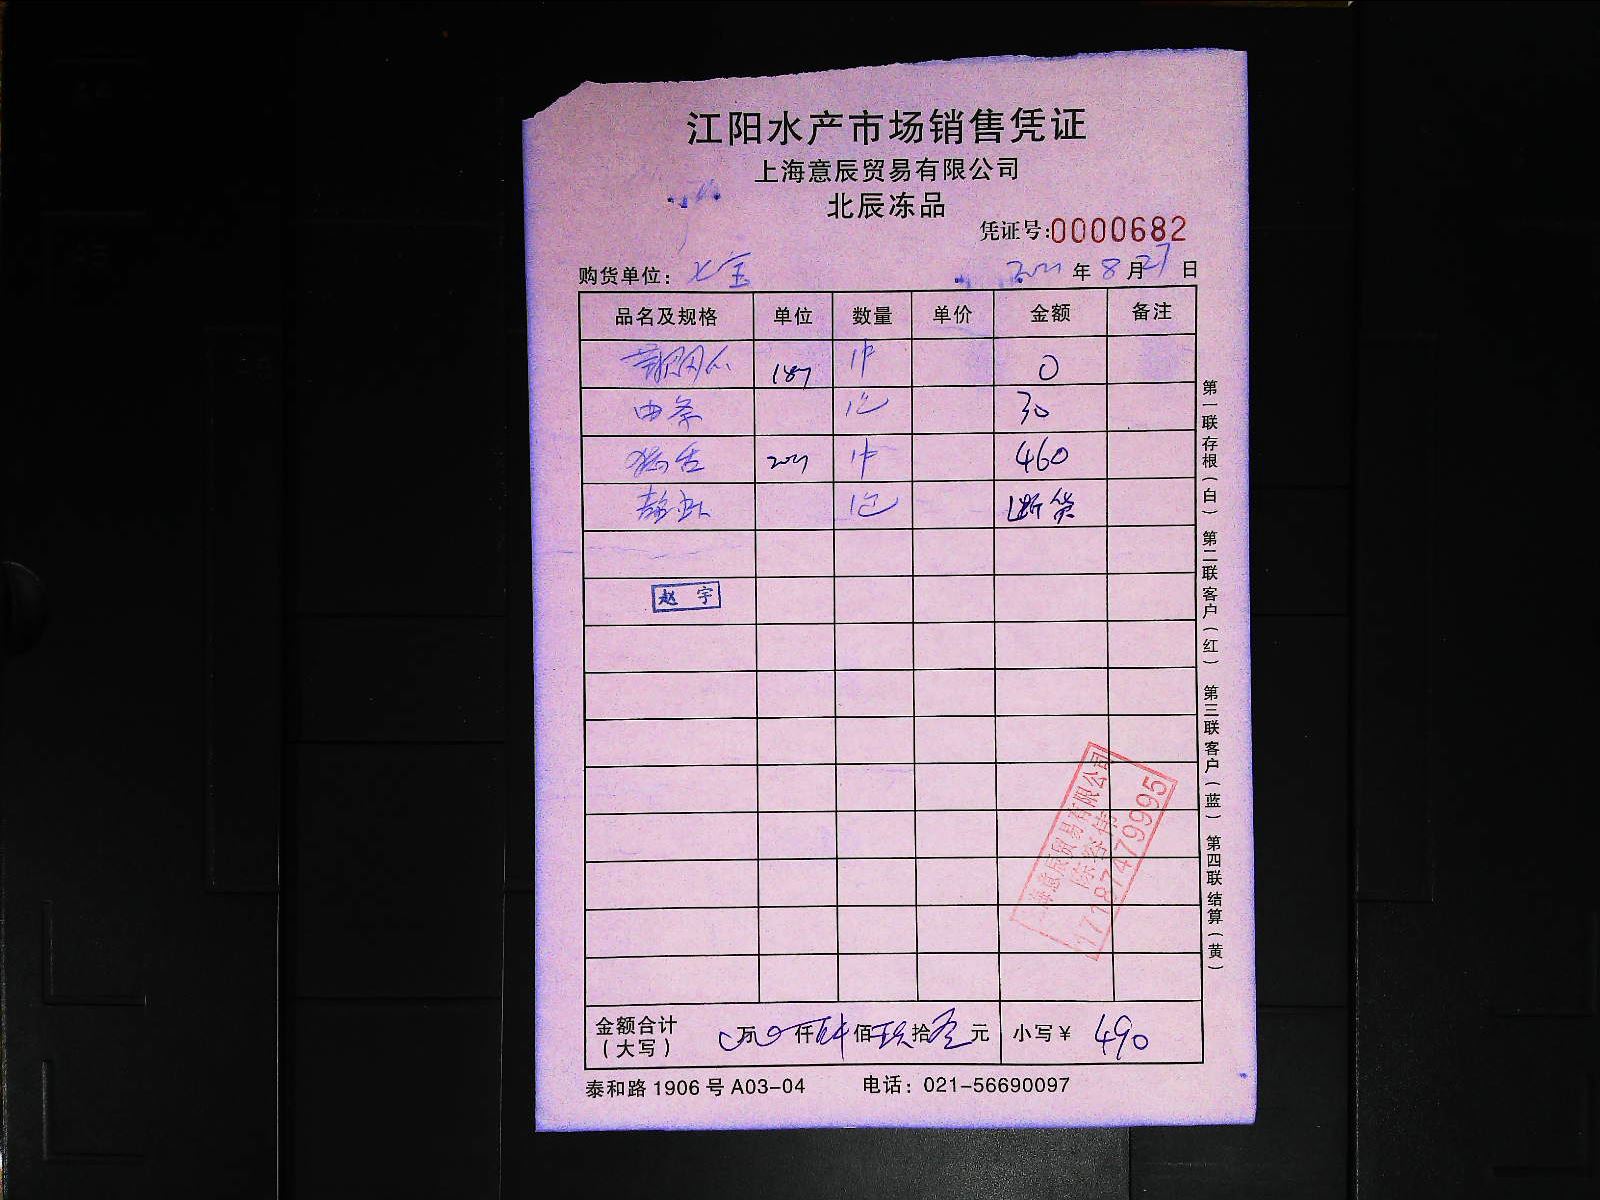 江阳水产市场销售凭证
上海意辰贸易有限公司
北辰冻品
凭证号:0000682
购货单位: 七宝 2021 年 8 月 27 日
品名及规格 单位 数量 单价 金额 备注
187 1件 0
1包 30
2021 1件 460
1包 断货
赵 宇
上海意辰贸易有限公司
17187479995
金额合计(大写) 0 万 0 仟 肆 佰 玖 拾 零 元 小写¥ 490
泰和路1906号A03-04 电话: 021-56690097
第一联存根(白) 第二联客户(红) 第三联客户(蓝) 第四联结算(黄)